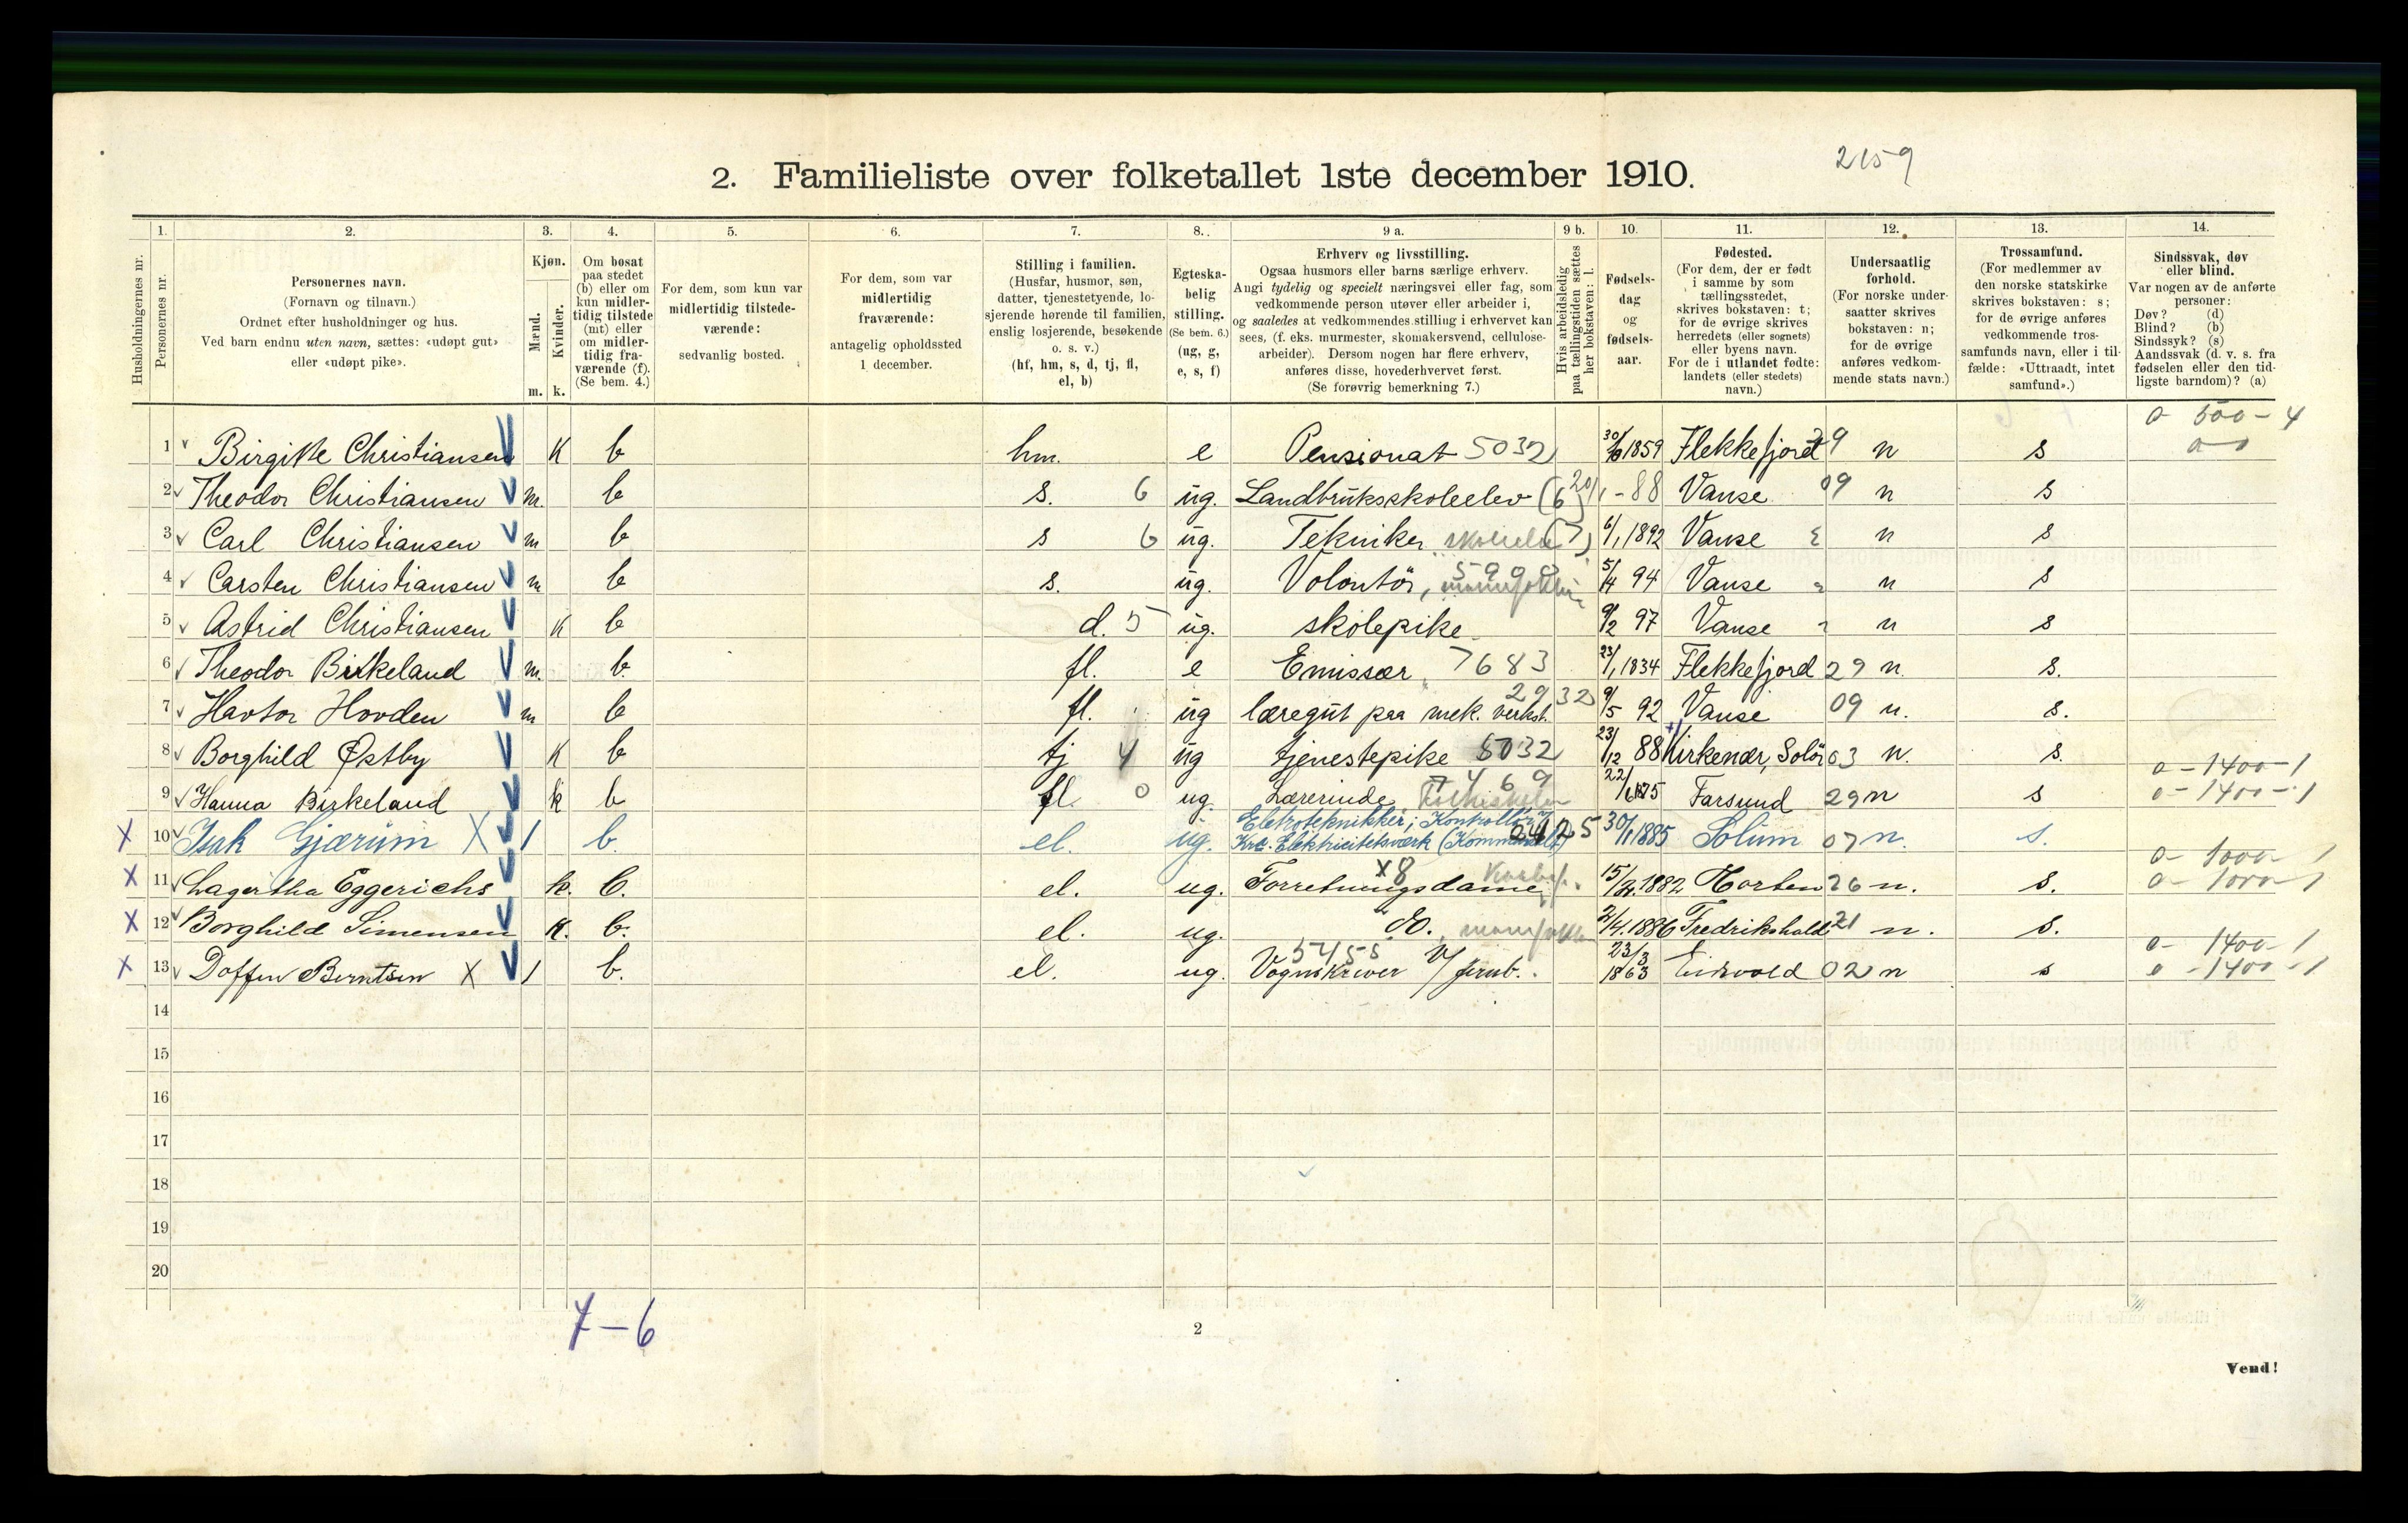 2159
2. Familieliste over folketallet 1ste december 1910.
Husholdningernes nr.
1.
Personernes nr.
2.
Personernes navn.
(Fornavn og tilnavn.)
Ordnet efter husholdninger og hus.
Ved barn endnu uten navn, sættes: «udøpt gut»
eller «udøpt pike».
3.
Kjøn.
Mænd.
Kvinder.
m. k.
4.
Om bosat
paa stedet
(b) eller om
kun midler-
tidig tilstede
(mt) eller
om midler-
tidig fra-
værende (f).
(Se bem. 4.)
5.
For dem, som kun var
midlertidig tilstede-
værende:
sedvanlig bosted.
6.
For dem, som var
midlertidig
fraværende:
antagelig opholdssted
1 december.
7.
Stilling i familien.
(Husfar, husmor, søn,
datter, tjenestetyende, lo-
sjerende hørende til familien,
enslig losjerende, besøkende
o. s. v.)
(hf, hm, s, d, tj, fl,
el, b)
8.
Egteska-
belig
stilling.
(Se bem. 6.)
(ug, g,
e, s, f)
9 a.
Erhverv og livsstilling.
Ogsaa husmors eller barns særlige erhverv.
Angi tydelig og specielt næringsvei eller fag, som
vedkommende person utøver eller arbeider i,
og saaledes at vedkommendes stilling i erhvervet kan
sees, (f. eks. murmester, skomakersvend, cellulose-
arbeider). Dersom nogen har flere erhverv,
anføres disse, hovederhvervet først.
(Se forøvrig bemerkning 7.)
9 b.
Hvis arbeidsledig
paa tællingstiden sættes
her bokstaven: l.
10.
Fødsels-
dag
og
fødsels-
aar.
11.
Fødested.
(For dem, der er født
i samme by som
tællingsstedet,
skrives bokstaven: t;
for de øvrige skrives
herredets (eller sognets)
eller byens navn.
For de i utlandet fødte:
landets (eller stedets)
navn.)
12.
Undersaatlig
forhold.
(For norske under-
saatter skrives
bokstaven: n;
for de øvrige
anføres vedkom-
mende stats navn.)
13.
Trossamfund.
(For medlemmer av
den norske statskirke
skrives bokstaven: s;
for de øvrige anføres
vedkommende tros-
samfunds navn, eller i til-
fælde: «Uttraadt, intet
samfund».)
14.
Sindssvak, døv
eller blind.
Var nogen av de anførte
personer:
Døv? (d)
Blind? (b)
Sindssyk? (s)
Aandssvak (d. v. s. fra
fødselen eller den tid-
ligste barndom)? (a)
0 500 - 4
1 Birgitte Christiansen k b hm. e Pensionat 5032 1859 Flekkefjord 29 n s
2 Theodor Christiansen m. b s. 6 ug. Landbruksskoleelev 20/1 - 88 Vanse 09 n s
3 Carl Christiansen m b s 6 ug. Tekniker 6/1 1892 Vanse n s
4 Carsten Christiansen m b s. ug. Volontör, 5/4 94 Vanse n s
5 Astrid Christiansen k b d. 5 ug. skolepike 9/2 97 Vanse n s
6 Theodor Birkeland m. b. fl. e Emissær 7683 23/1 1834 Flekkefjord 29 n. s.
7 Havtor Hovden m b fl. ug læregut paa mek. verkst. 2932 9/5 92 Vanse 09 n. s.
8 Borghild Østby k b tj 4 ug tjenestepike 5032 23/12 88 Kirkenær, Solör 03 n. s.
0 - 1400 - 1
9 Hanna Birkeland k b fl. 0 ug. Lærerinde 7469 22/6 1875 Farsund 29 n s 0 - 1400 - 1
Elektrotekniker; Kontrollör v.
X 10 Isak Gjærum X 1 b. el. ug. Kra. Elektricitetsværk (Kommunalt) 30/1 1885 Solum 07 n. s.
0 - 1000 - 1
X 11 Lagertha Eggerichs k. b. el. ug. Forretningsdame X8 1882 Horten 26 n. s. 0 - 1000 - 1
X 12 Borghild Simensen k. b. el. ug. do. 2/4. 1886 Fredrikshald 21 n. s.
5455 0 - 1400 - 1
X 13 Doffen Berntsen X 1 b. el. ug. Vognskriver v/ jernb. 23/3 1863 Eidsvold 02 n s 0 - 1400 - 1
14
15
16
17
18
19
20
7 - 6
2
Vend!